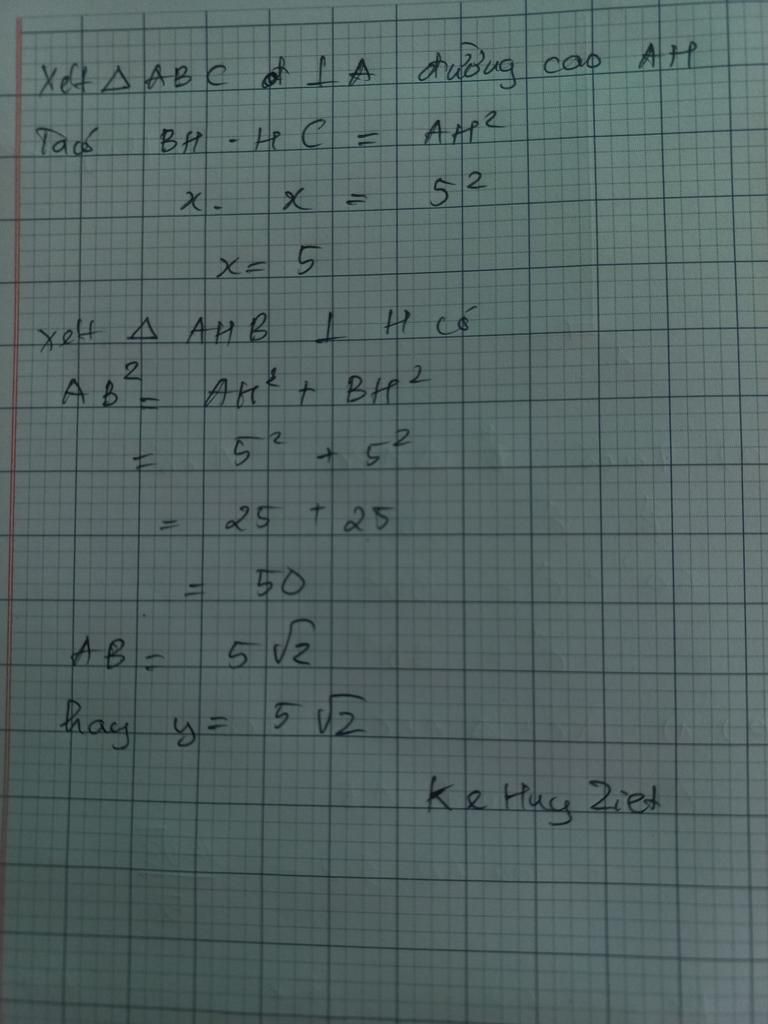 Xét Δ ABC ⊥ A đường cao AH
Ta có BH . HC = AH²
x . x = 5²
x = 5
xét Δ AHB ⊥ H có
AB² = AH² + BH²
= 5² + 5²
= 25 + 25
= 50
AB = 5√2
hay y = 5√2
Huy